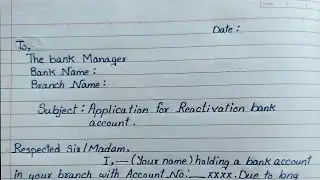 Date :
To,
The bank Manager
Bank Name :
Branch Name :
Subject : Application for Reactivation bank
account .
Respected Sir/Madam,
I, — (Your name) holding a bank account
in your branch with Account No:— xxxx. Due to long